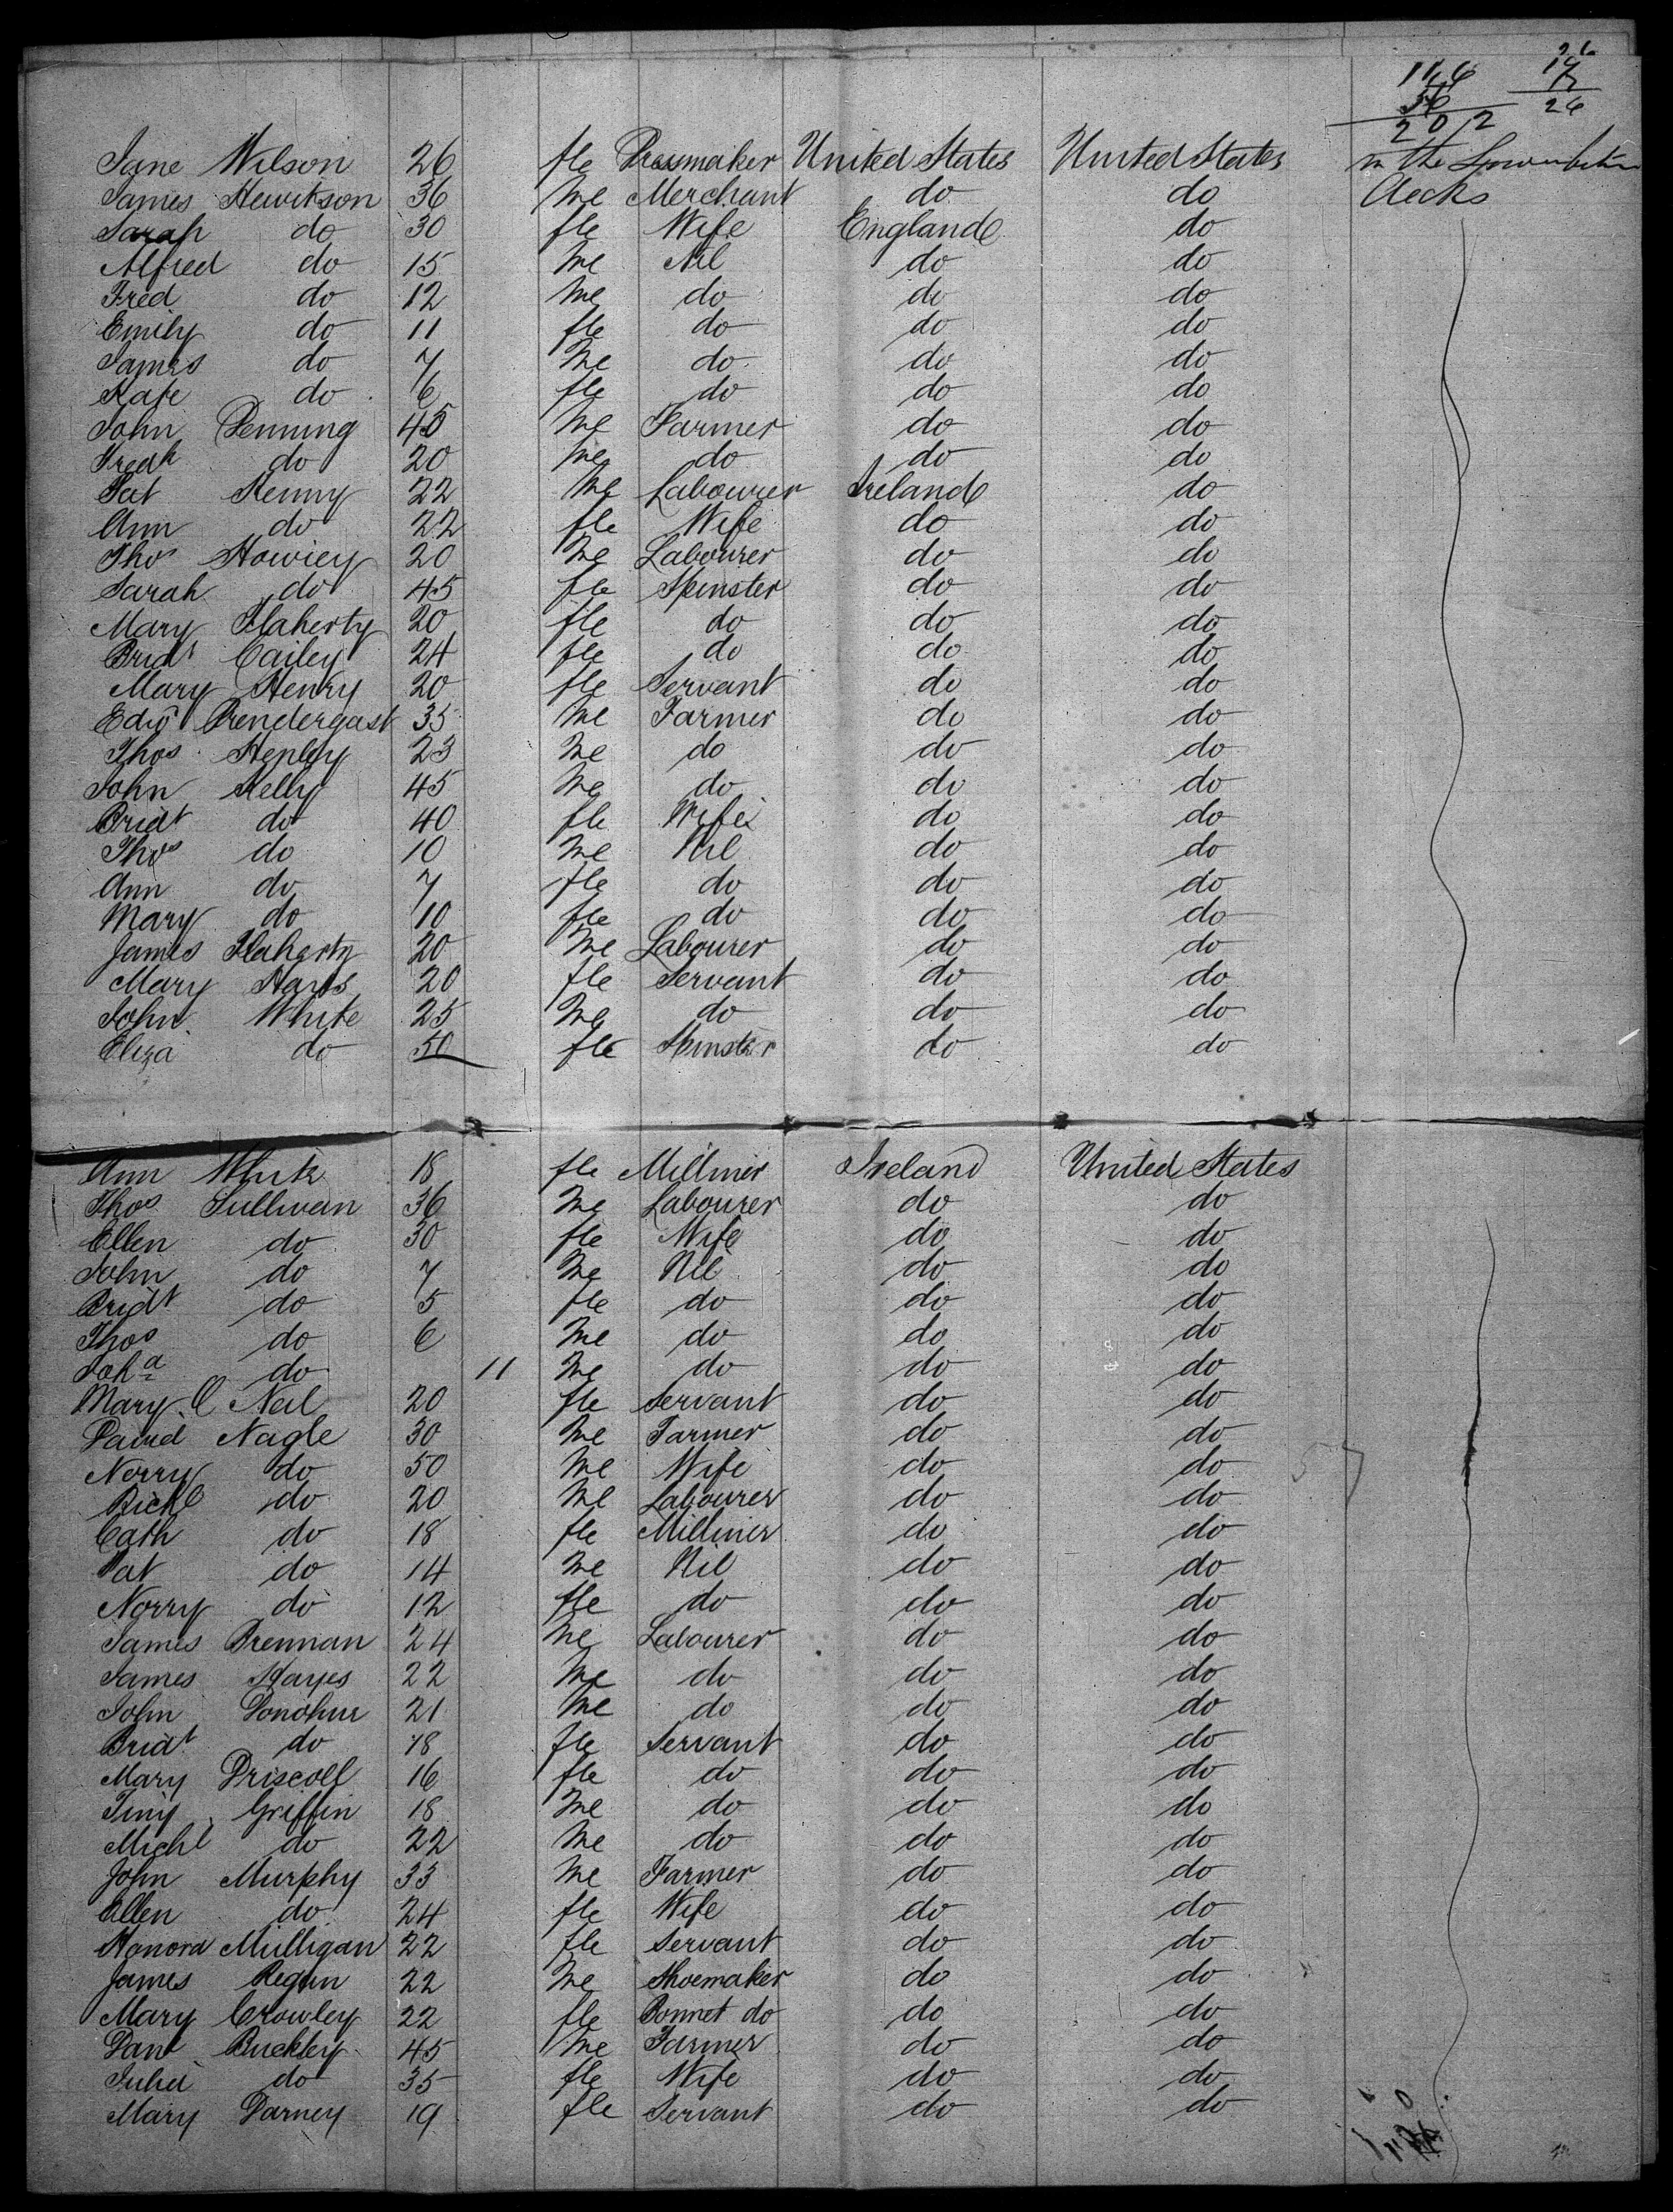 26
116 19
56 7
202 26
Jane Wilson 26 fle Dressmaker United States United States in the
James Hewitson 36 Me Merchant do do decks
Sarah do 30 fle Wife England do
Alfred do 15 Me Nil do do
Fred do 12 Me do do do
Emily do 11 fle do do do
James do 7 Me do do do
Kate do 6 fle do do do
John Denning 45 Me Farmer do do
Fredk do 20 Me do do do
Pat Kenny 22 Me Labourer Ireland do
Ann do 22 fle Wife do do
Thos Howiey 20 Me Labourer do do
Sarah do 45 fle Spinster do do
Mary Flaherty 20 fle do do do
Bridt Cailey 24 fle do do do
Mary Henry 20 fle Servant do do
Edwd Prendergast 35 Me Farmer do do
Thos Henley 23 Me do do do
John Kelly 45 Me do do do
Bridt do 40 fle Wife do do
Thos do 10 Me Nil do do
Ann do 7 fle do do do
Mary do 10 fle do do do
James Flaherty 20 Me Labourer do do
Mary 20 fle Servant do do
John White 25 Me do do do
Eliza do 50 fle Spinster do do
Ann White 18 fle Milliner Ireland United States
Thos Sullivan 36 Me Labourer do do
Ellen do 30 fle Wife do do
John do 7 Me Nil do do
Bridt do 5 fle do do do
Thos do 6 Me do do do
Joha do 11 Me do do do
Mary O Neil 20 fle Servant do do
David Nagle 30 Me Farmer do do
Norry do 50 Me Wife do do
Richd do 20 Me Labourer do do
Cath do 18 fle Milliner do do
Pat do 14 Me Nil do do
Norry do 12 fle do do do
James Brennan 24 Me Labourer do do
James Hayes 22 Me do do do
John Donohue 21 Me do do do
Bridt do 18 fle Servant do do
Mary Driscoll 16 fle do do do
Timy Griffin 18 Me do do do
Michl do 22 Me do do do
John Murphy 33 Me Farmer do do
Ellen do 24 fle Wife do do
Honora Mulligan 22 fle Servant do do
James Regan 22 Me Shoemaker do do
Mary Crowley 22 fle Bonnet do do do
Danl Buckley 45 Me Farmer do do
Julia do 35 fle Wife do do
Mary Darney 19 fle Servant do do